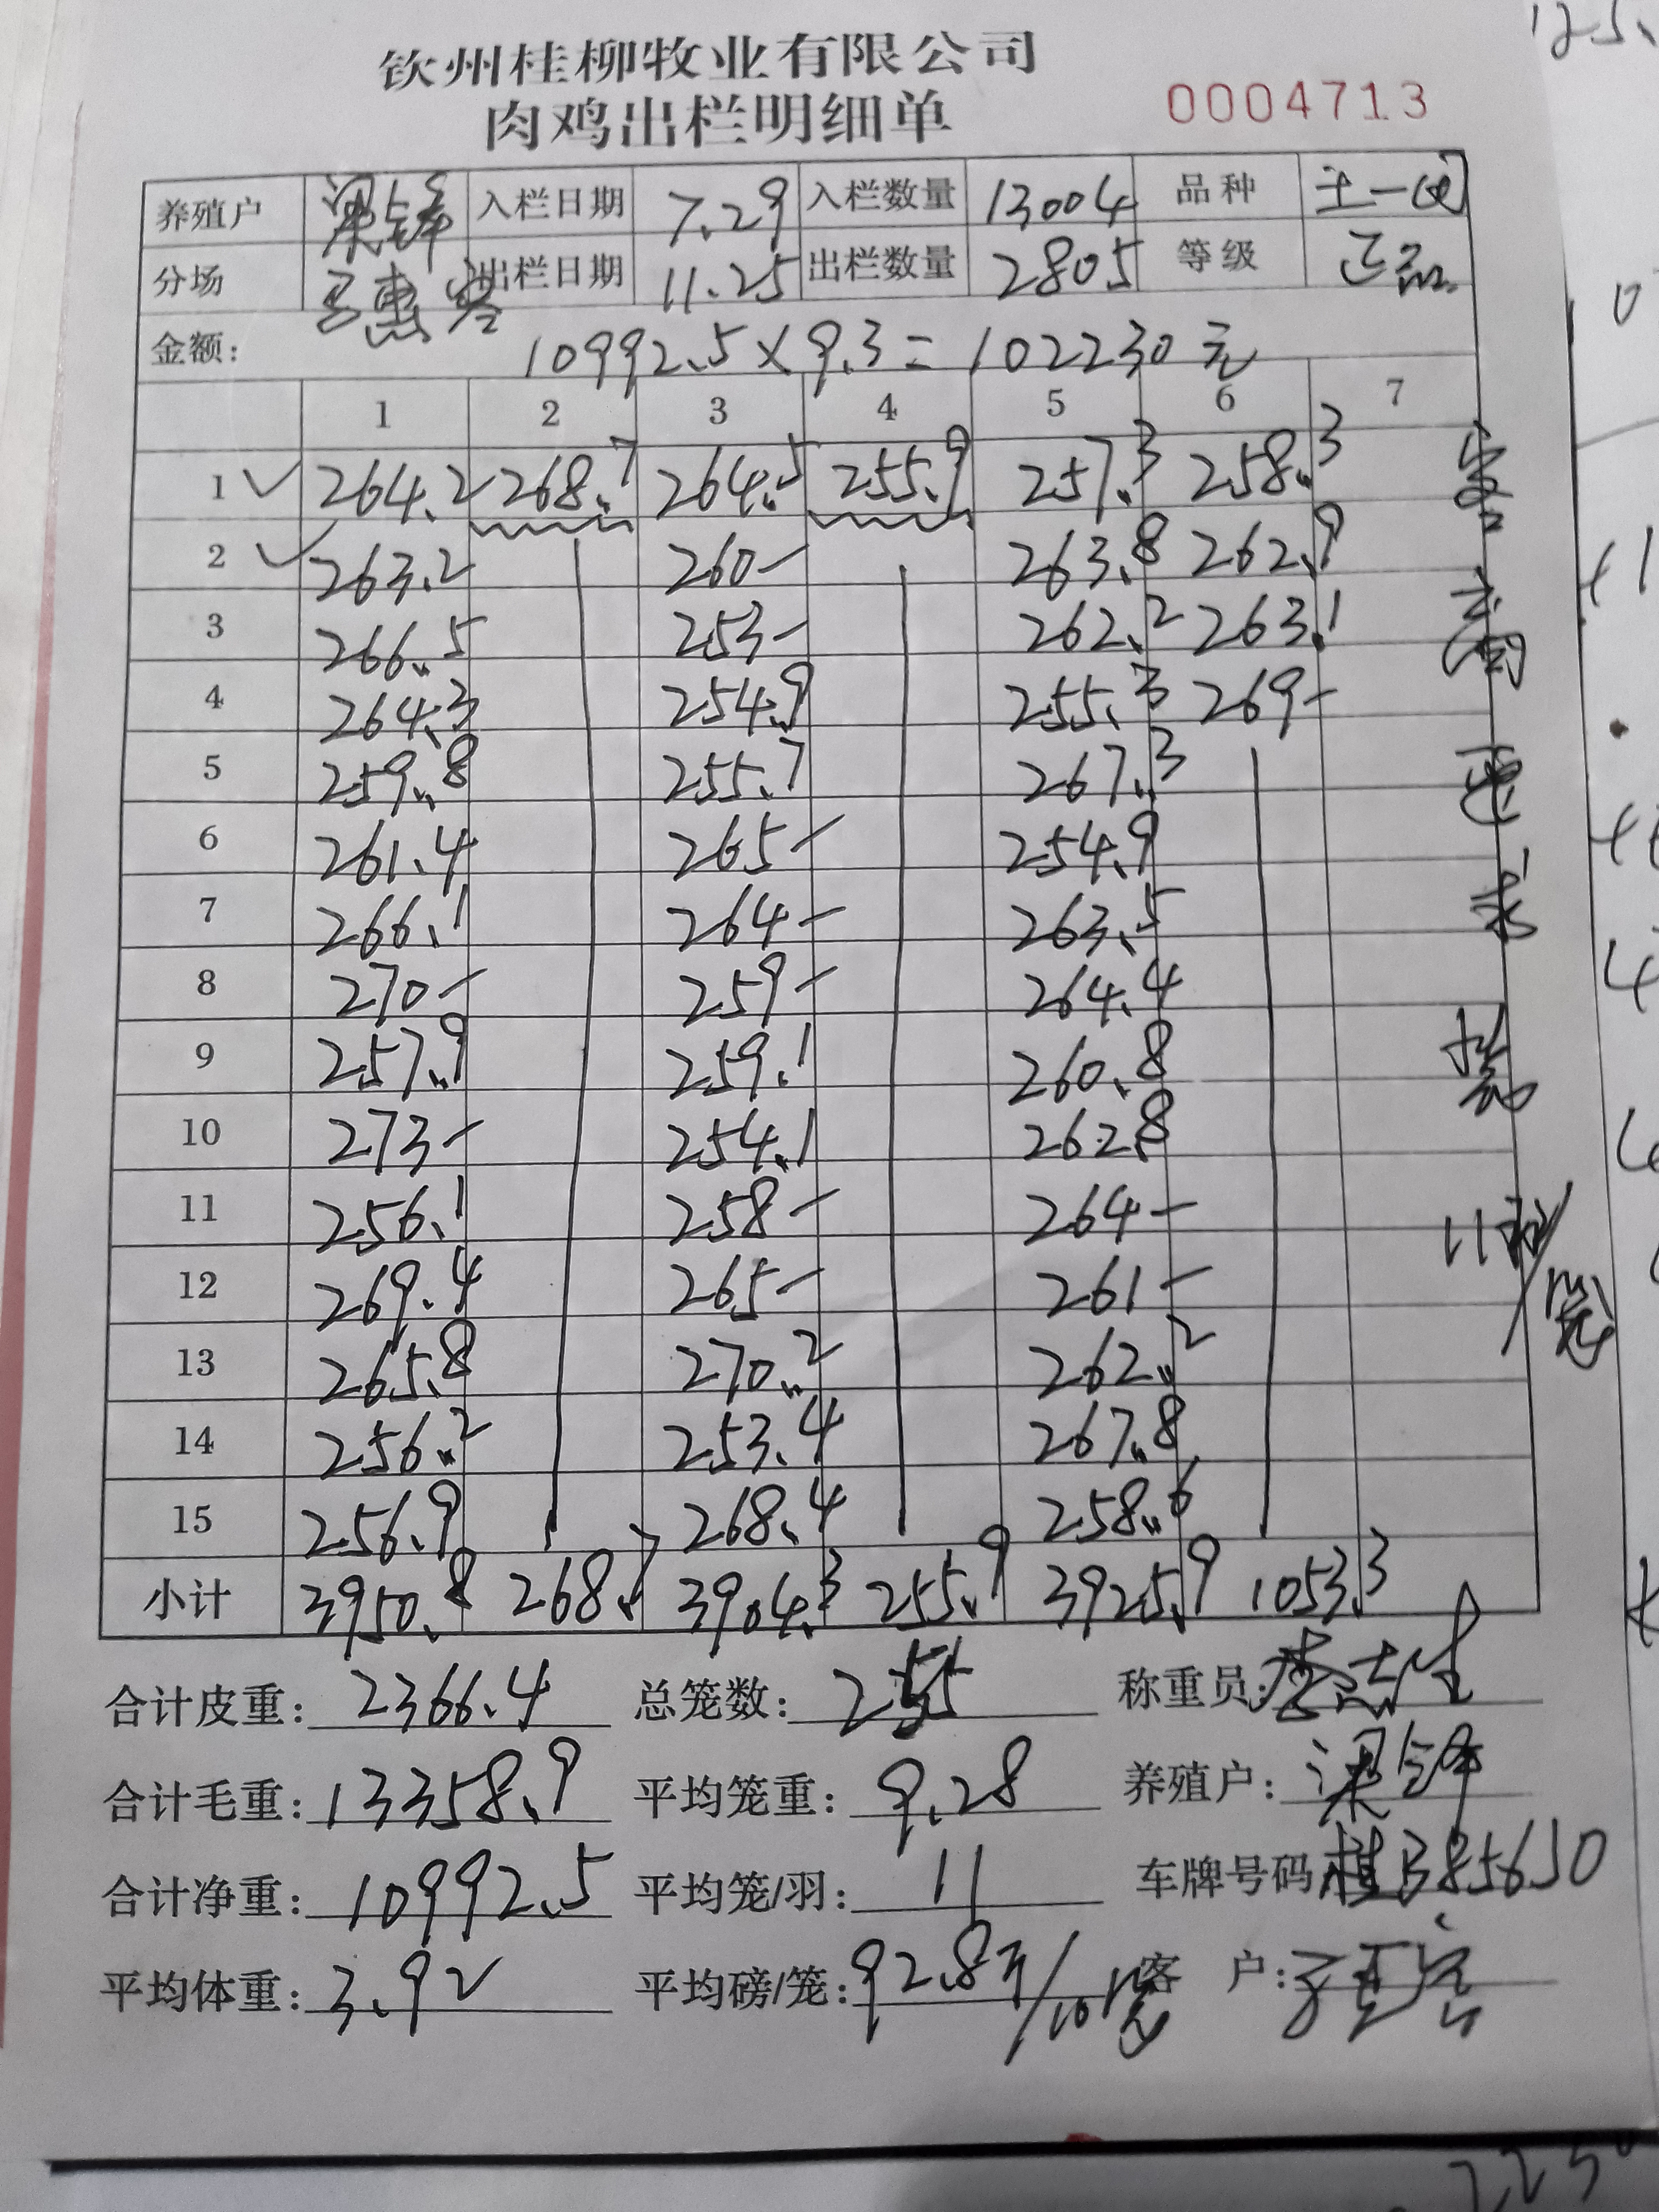 钦州桂柳牧业有限公司
肉鸡出栏明细单 0004713
养殖户 梁锋 入栏日期 7.29 入栏数量 13004 品种 土一
分场 惠 出栏日期 11.25 出栏数量 2805 等级 正品
金额: 10992.5×9.3=102230元
1 2 3 4 5 6 7
1 264.2 268.7 264.5 255.9 257.3 258.3
2 263.2 260- 263.8 262.9
3 266.5 253- 262.2 263.1
4 264.3 254.9 255.3 269-
5 259.8 255.7 267.3
6 261.4 265- 254.9
7 266.1 264- 263.5
8 270- 259- 264.4
9 257.9 259.1 260.8
10 273- 254.1 262.8
11 256.1 258- 264-
12 269.4 265- 261-
13 265.8 270.2 262.2
14 256.2 253.4 267.8
15 256.9 268.4 258.6
小计 3950.8 268.7 3904.3 255.9 3925.9 1053.3
客
要
求
装
11羽/笼
合计皮重: 2366.4 总笼数: 255 称重员: 李志生
合计毛重: 13358.9 平均笼重: 9.28 养殖户: 梁锋
合计净重: 10992.5 平均笼/羽: 11 车牌号码 桂B85650
平均体重: 3.92 平均磅/笼: 92.8斤/10笼 客 户: